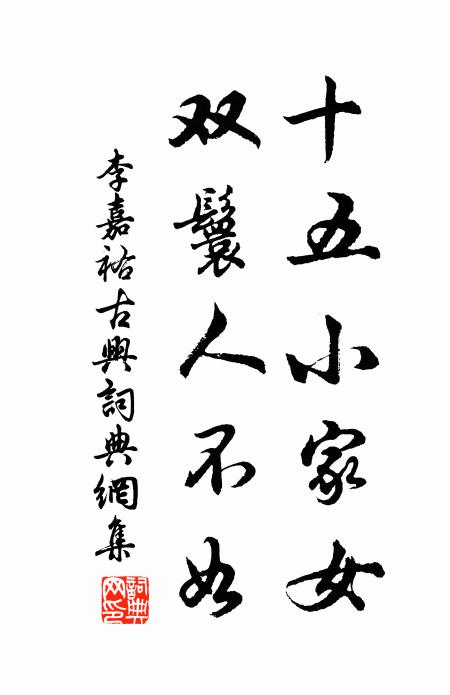 十五小家女
双鬟人不如
李嘉祐古典詞典網集
詞典網印